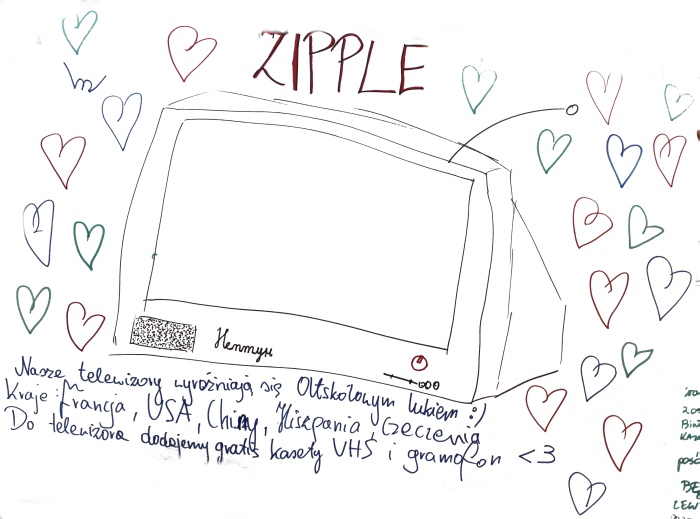 ZIPPLE
Нептун
Nasze telewizory wyróżniają się Oltskolowym lukiem :)
Kraje: Francja, USA, Chiny, Hiszpania Czeczenia
Do telewizora dodajemy gratis kasety VHS i gramofon <3